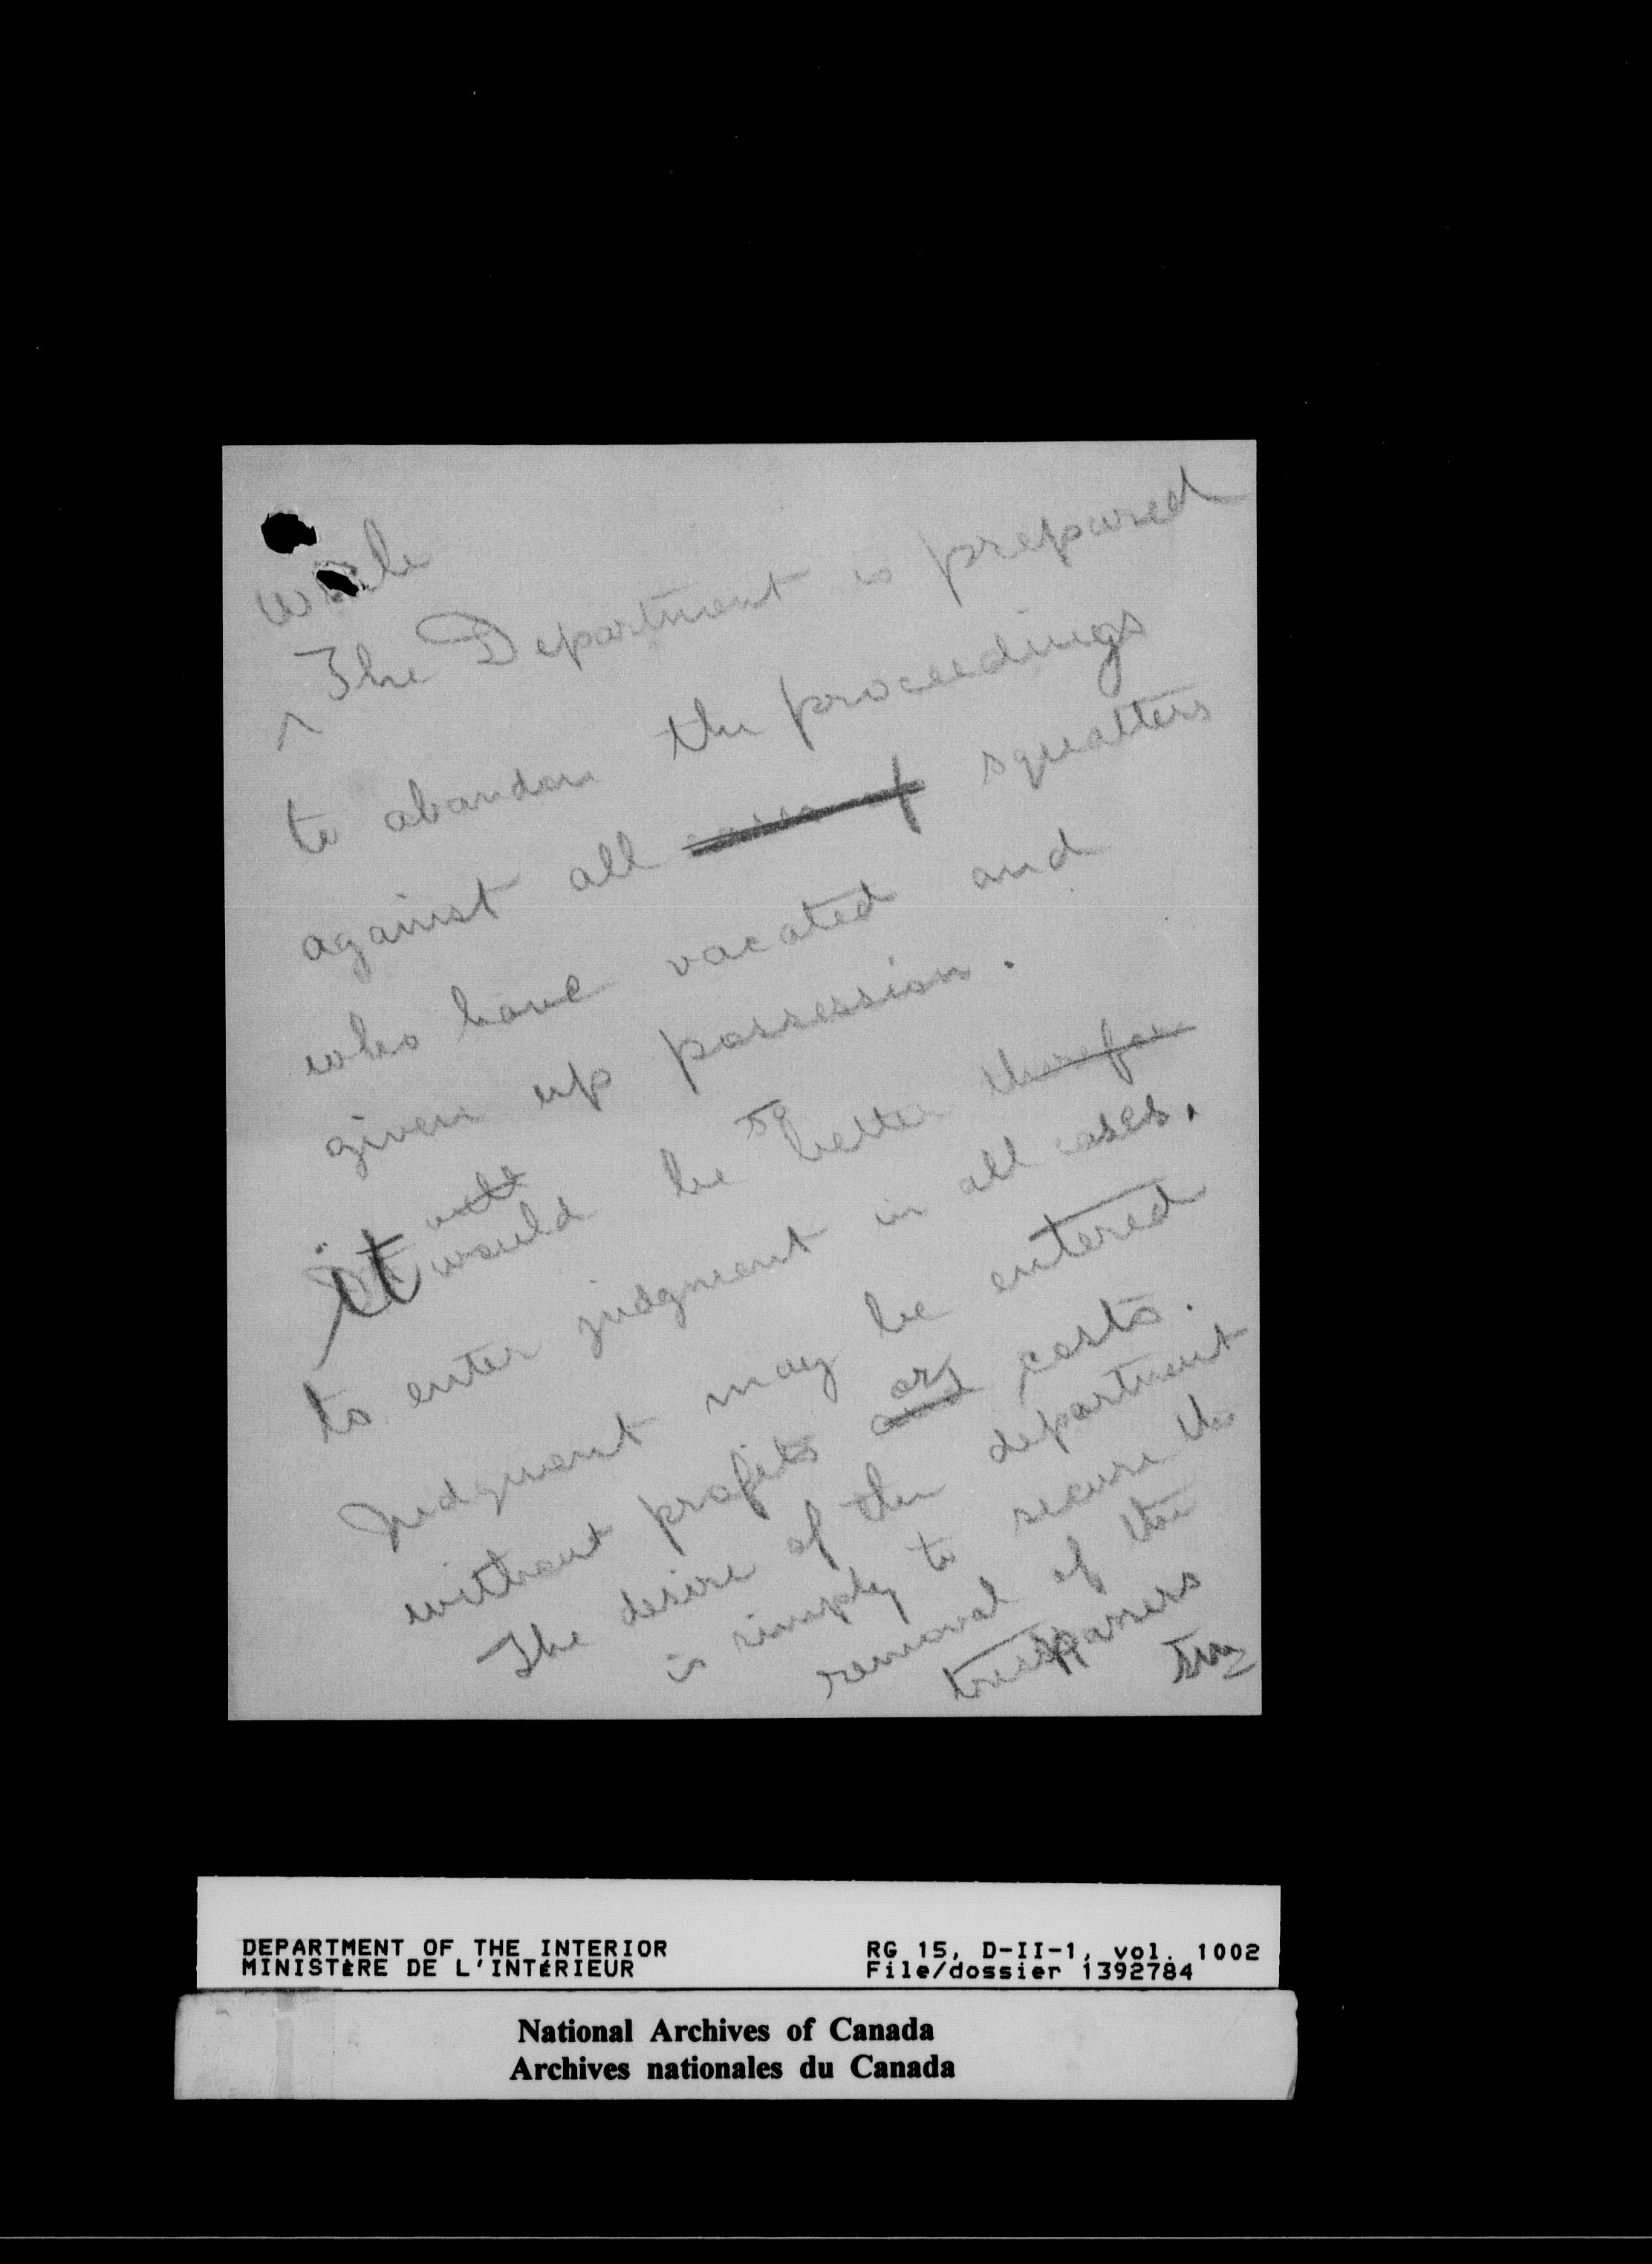 While
The Department is prepared
to abandon the proceedings
against all cases of squatters
who have vacated and
given up possession.
it would be better therefor
to enter judgment in all cases.
Judgment may be entered
without profits or costs.
The desire of the department
is simply to secure the
removal of the
trespassers
DEPARTMENT OF THE INTERIOR
MINISTÈRE DE L'INTÉRIEUR
RG 15, D-II-1, vol. 1002
File/dossier 1392784
National Archives of Canada
Archives nationales du Canada